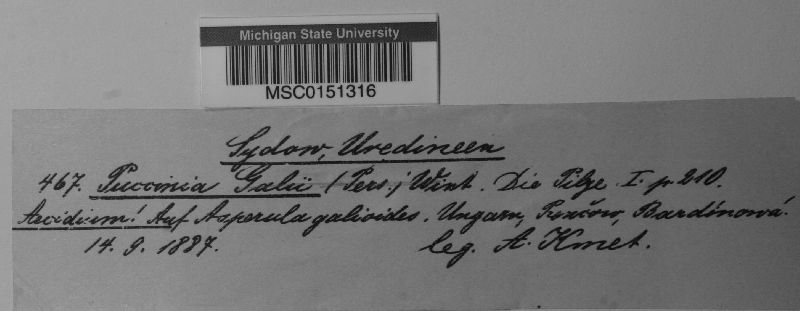 Michigan State University
MSC0151316
Sydow, Uredineen
467. Puccinia Galii (Pers.) Wint. Die Pilze I. p 210.
Aecidium! Auf Asperula galioides. Ungarn, Prenčow, Bardínowá.
14. 9. 1887. leg. A. Kmet.